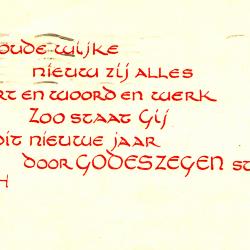 oude wijke
nieuw zij alles
rt en woord en werk
Zoo staat Gij
dit nieuwe jaar
door GODESZEGEN st
H